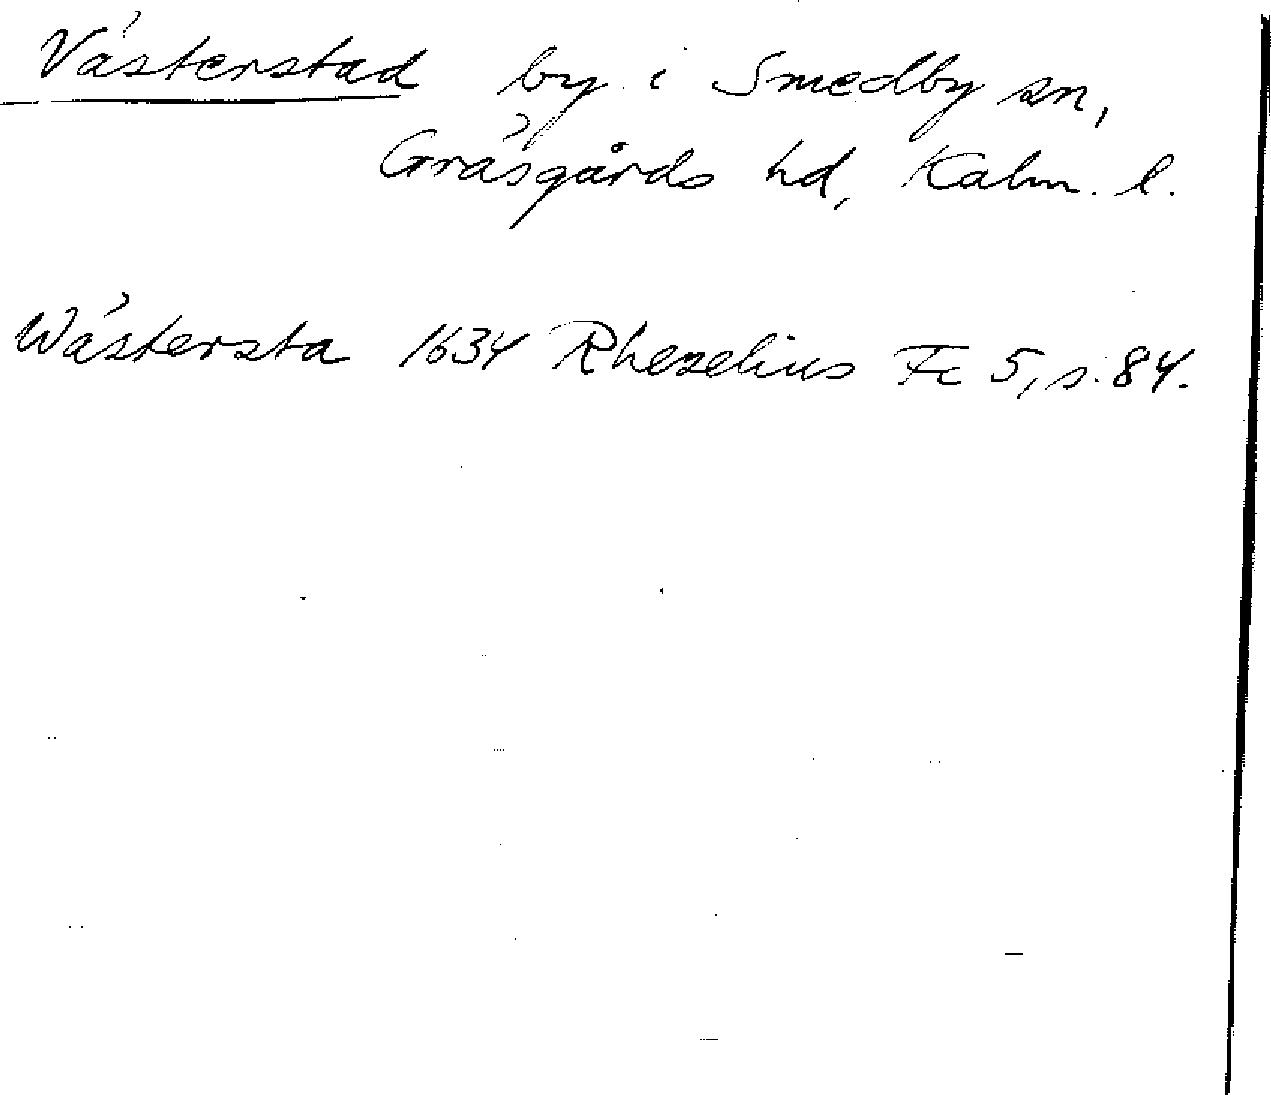 Västerstad by i Smedby sn,
Gräsgårds hd, Kalm. l.
Wästersta 1634 Rhezelius Fc 5, s. 84.